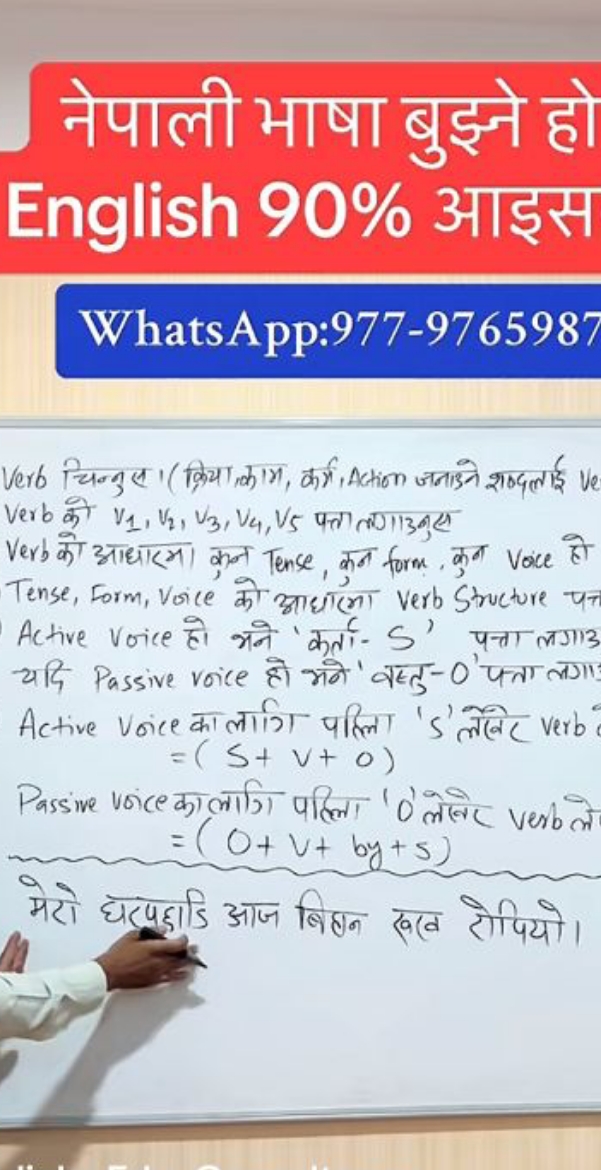 नेपाली भाषा बुझ्ने हो
English 90% आइस
WhatsApp:977-9765987
Verb चिन्नुस।(क्रिया,काम, कर्म,Action जनाउने शब्दलाई Ve
Verb को V1, V2, V3, V4, V5 पत्ता लगाउनुस
Verb को आधारमा कुन Tense, कुन form, कुन Voice हो
Tense, Form, Voice को आधारमा Verb Structure पत्त
Active Voice हो भने 'कर्ता- S' पत्ता लगाउ
यदि Passive voice हो भने 'वस्तु-O' पत्ता लगाउ
Active Voice का लागि पहिला 'S' लेखेर verb ले
=( S+ V+ O)
Passive voice का लागि पहिला 'O' लेखेर verb ले
=( O+ V+ by+S)
मेरो घरपछाडि आज बिहान रुख रोपियो।